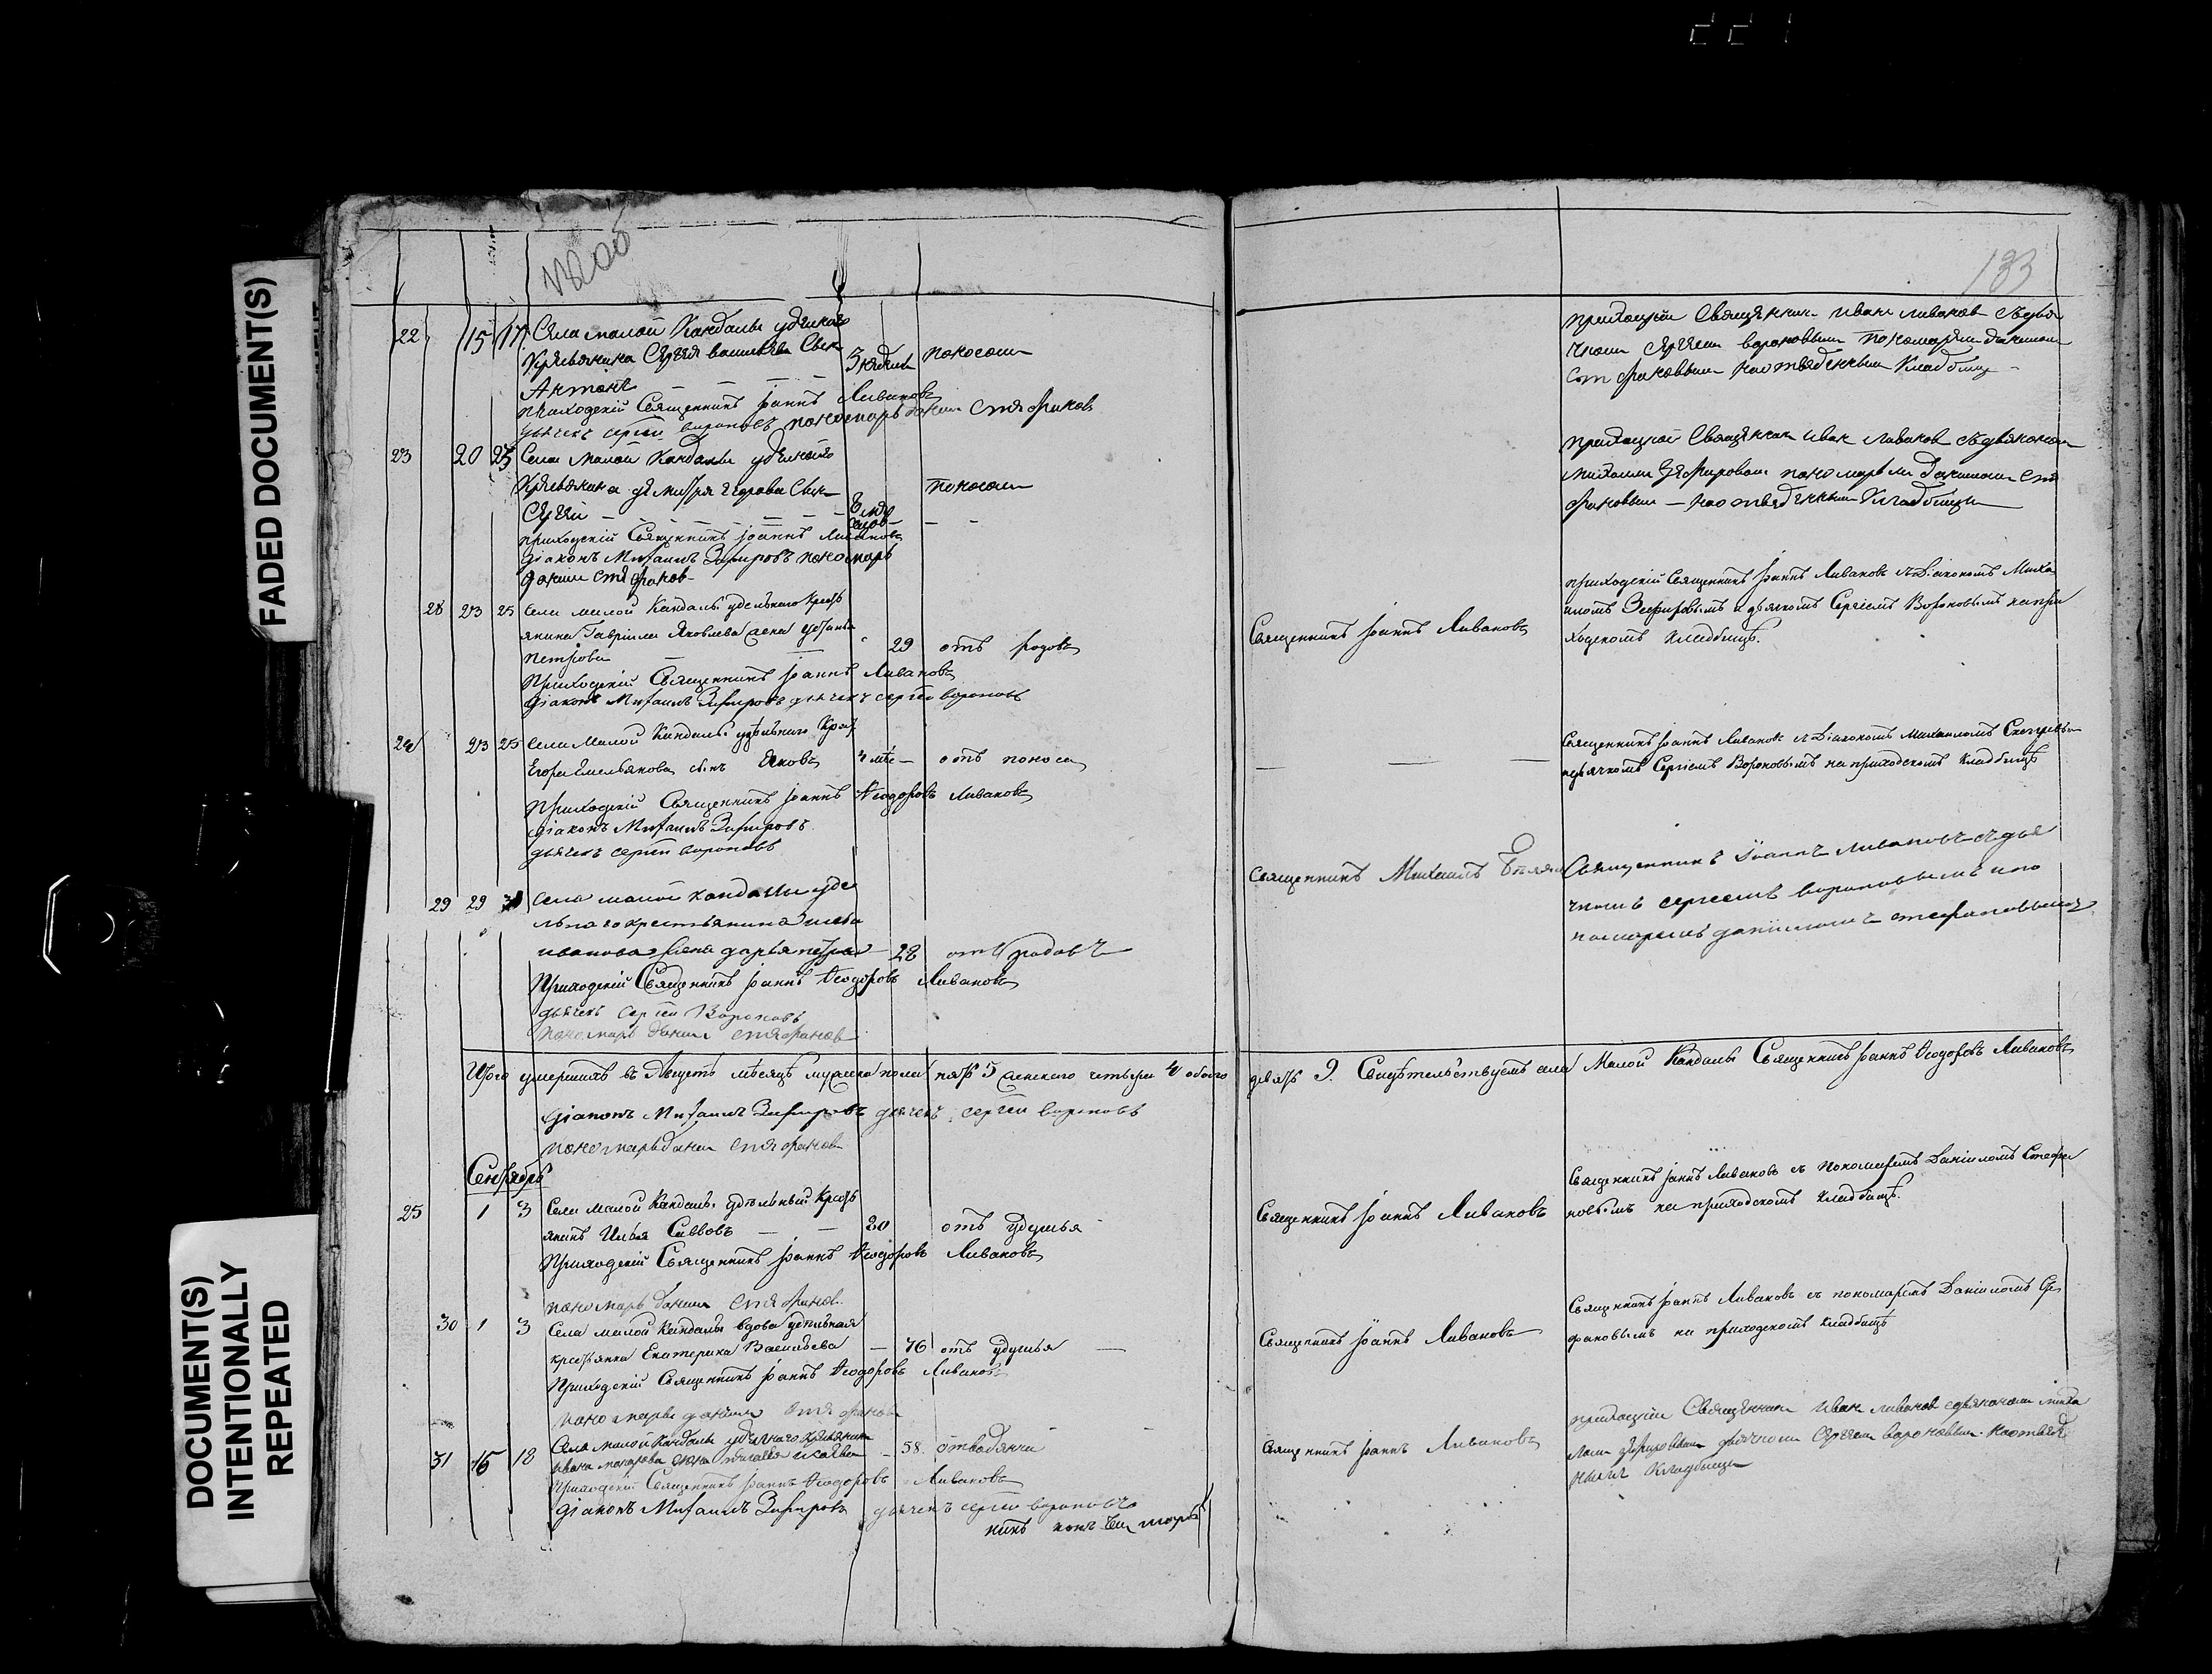 221
FADED DOCUMENT(S)
DOCUMENT(S)
INTENTIONALLY
REPEATED
133
22 15 17 Села малой Кандалы удѣлнаго
Крестьянина Сергея васильева Сынъ
Антонъ 3 недели поносом
приходскiй Священникъ Iоаннъ Ливановъ
дьячекъ сергеи вороновъ пономарь данил стефанов
приходцкои Священник иван ливанов
сергеем вороновым пономарем данилом
стефановым на отведенным Кладбище
23 20 23 Села Малой Кандалы удѣлнаго
Крестьянина дмитрея егорова Сын
Сергей поносом
приходскiй Священникъ Iоаннъ Ливановъ
дiаконъ Михаилъ Зефировъ пономарь
данил стефанов
приходцкой Священник иван ливанов с дьяконом
михаилом зефировом пономарем данилом сте
фановым на отведенным Кладбищи
28 23 25 Села малой Кандалы удѣльнаго Крест
янина Гаврiила Яковлева жена
Петрова 29 отъ родовъ
Приходскiй Священникъ Iоаннъ Ливановъ
дiаконъ Михаилъ Зефировъ дьячекъ сергеи вороновъ
Священникъ Iоаннъ Ливановъ
приходскiй Священникъ Iоаннъ Ливановъ съ Дiакономъ Миха
иломъ Зефировымъ и дьячкомъ Сергiемъ Вороновымъ на при
ходскомъ кладбищѣ.
24 23 25 Села Малой Кандалы удѣльнаго Крест
Егора Емельянова сынъ Яковъ отъ поноса
Приходскiй Священникъ Iоаннъ Ѳеодоровъ Ливановъ
дiаконъ Михаилъ Зефировъ
дьячекъ сергеи вороновъ
Священникъ Iоаннъ Ливановъ съ Дiакономъ Михаиломъ
и дьячкомъ Сергiемъ Вороновымъ на приходскомъ кладбищѣ
29 29 Села малой кандалы уде
льнаго крестьянина
иванова жена дарья петрова 28 отъ родовъ
Приходскiй Священникъ Iоаннъ Ѳеодоровъ Ливановъ
дьячекъ Сергеи Вороновъ
пономарь данил стефанов
Священникъ Михаилъ
Священникъ Iоаннъ ливановъ съ дья
чкомъ сергеемъ вороновымъ и по
номаремъ данiиломъ стефановымъ
Итого умершихъ въ Августѣ мѣсяцѣ мужеска пола пять 5 женскаго четыре 4 обоего девять 9. Свидѣтельствуемъ села Малой Кандалы Священникъ Iоаннъ Ѳеодоровъ Ливановъ
дiаконъ Михаилъ Зефировъ дьячекъ сергеи вороновъ
пономарь данил стефанов
Сентябрь
25 1 3 Села малой Кандалы удѣльный Крест
янинъ Илья Саввовъ отъ удушья
Приходскiй Священникъ Iоаннъ Ѳеодоровъ Ливановъ
пономарь данил стефанов.
Священникъ Iоаннъ Ливановъ
Священникъ Iоаннъ Ливановъ съ пономаремъ Данiиломъ Стефа
новымъ на приходскомъ кладбищѣ.
30 1 3 Села малой Кандалы вдова удѣльная
крестьянка Екатерина Васильева 76 отъ удушья
Приходскiй Священникъ Iоаннъ Ѳеодоровъ Ливановъ
пономарь данил стефанов
Священникъ Iоаннъ Ливановъ
Священникъ Iоаннъ Ливановъ съ пономаремъ Данiиломъ Сте
фановымъ на приходскомъ кладбищѣ
31 16 18 Села малой Кандалы удѣлнаго крестьянина
ивана жена 58
Приходскiй Священникъ Iоаннъ Ѳеодоровъ Ливановъ
дiаконъ Михаилъ Зефировъ дьячекъ сергеи вороновъ
Священникъ Iоаннъ Ливановъ
приходцкiи Священник иван ливанов с дьяконом миха
илом зефировым дьячком Сергеем вороновым на отведе
ным Кладбище